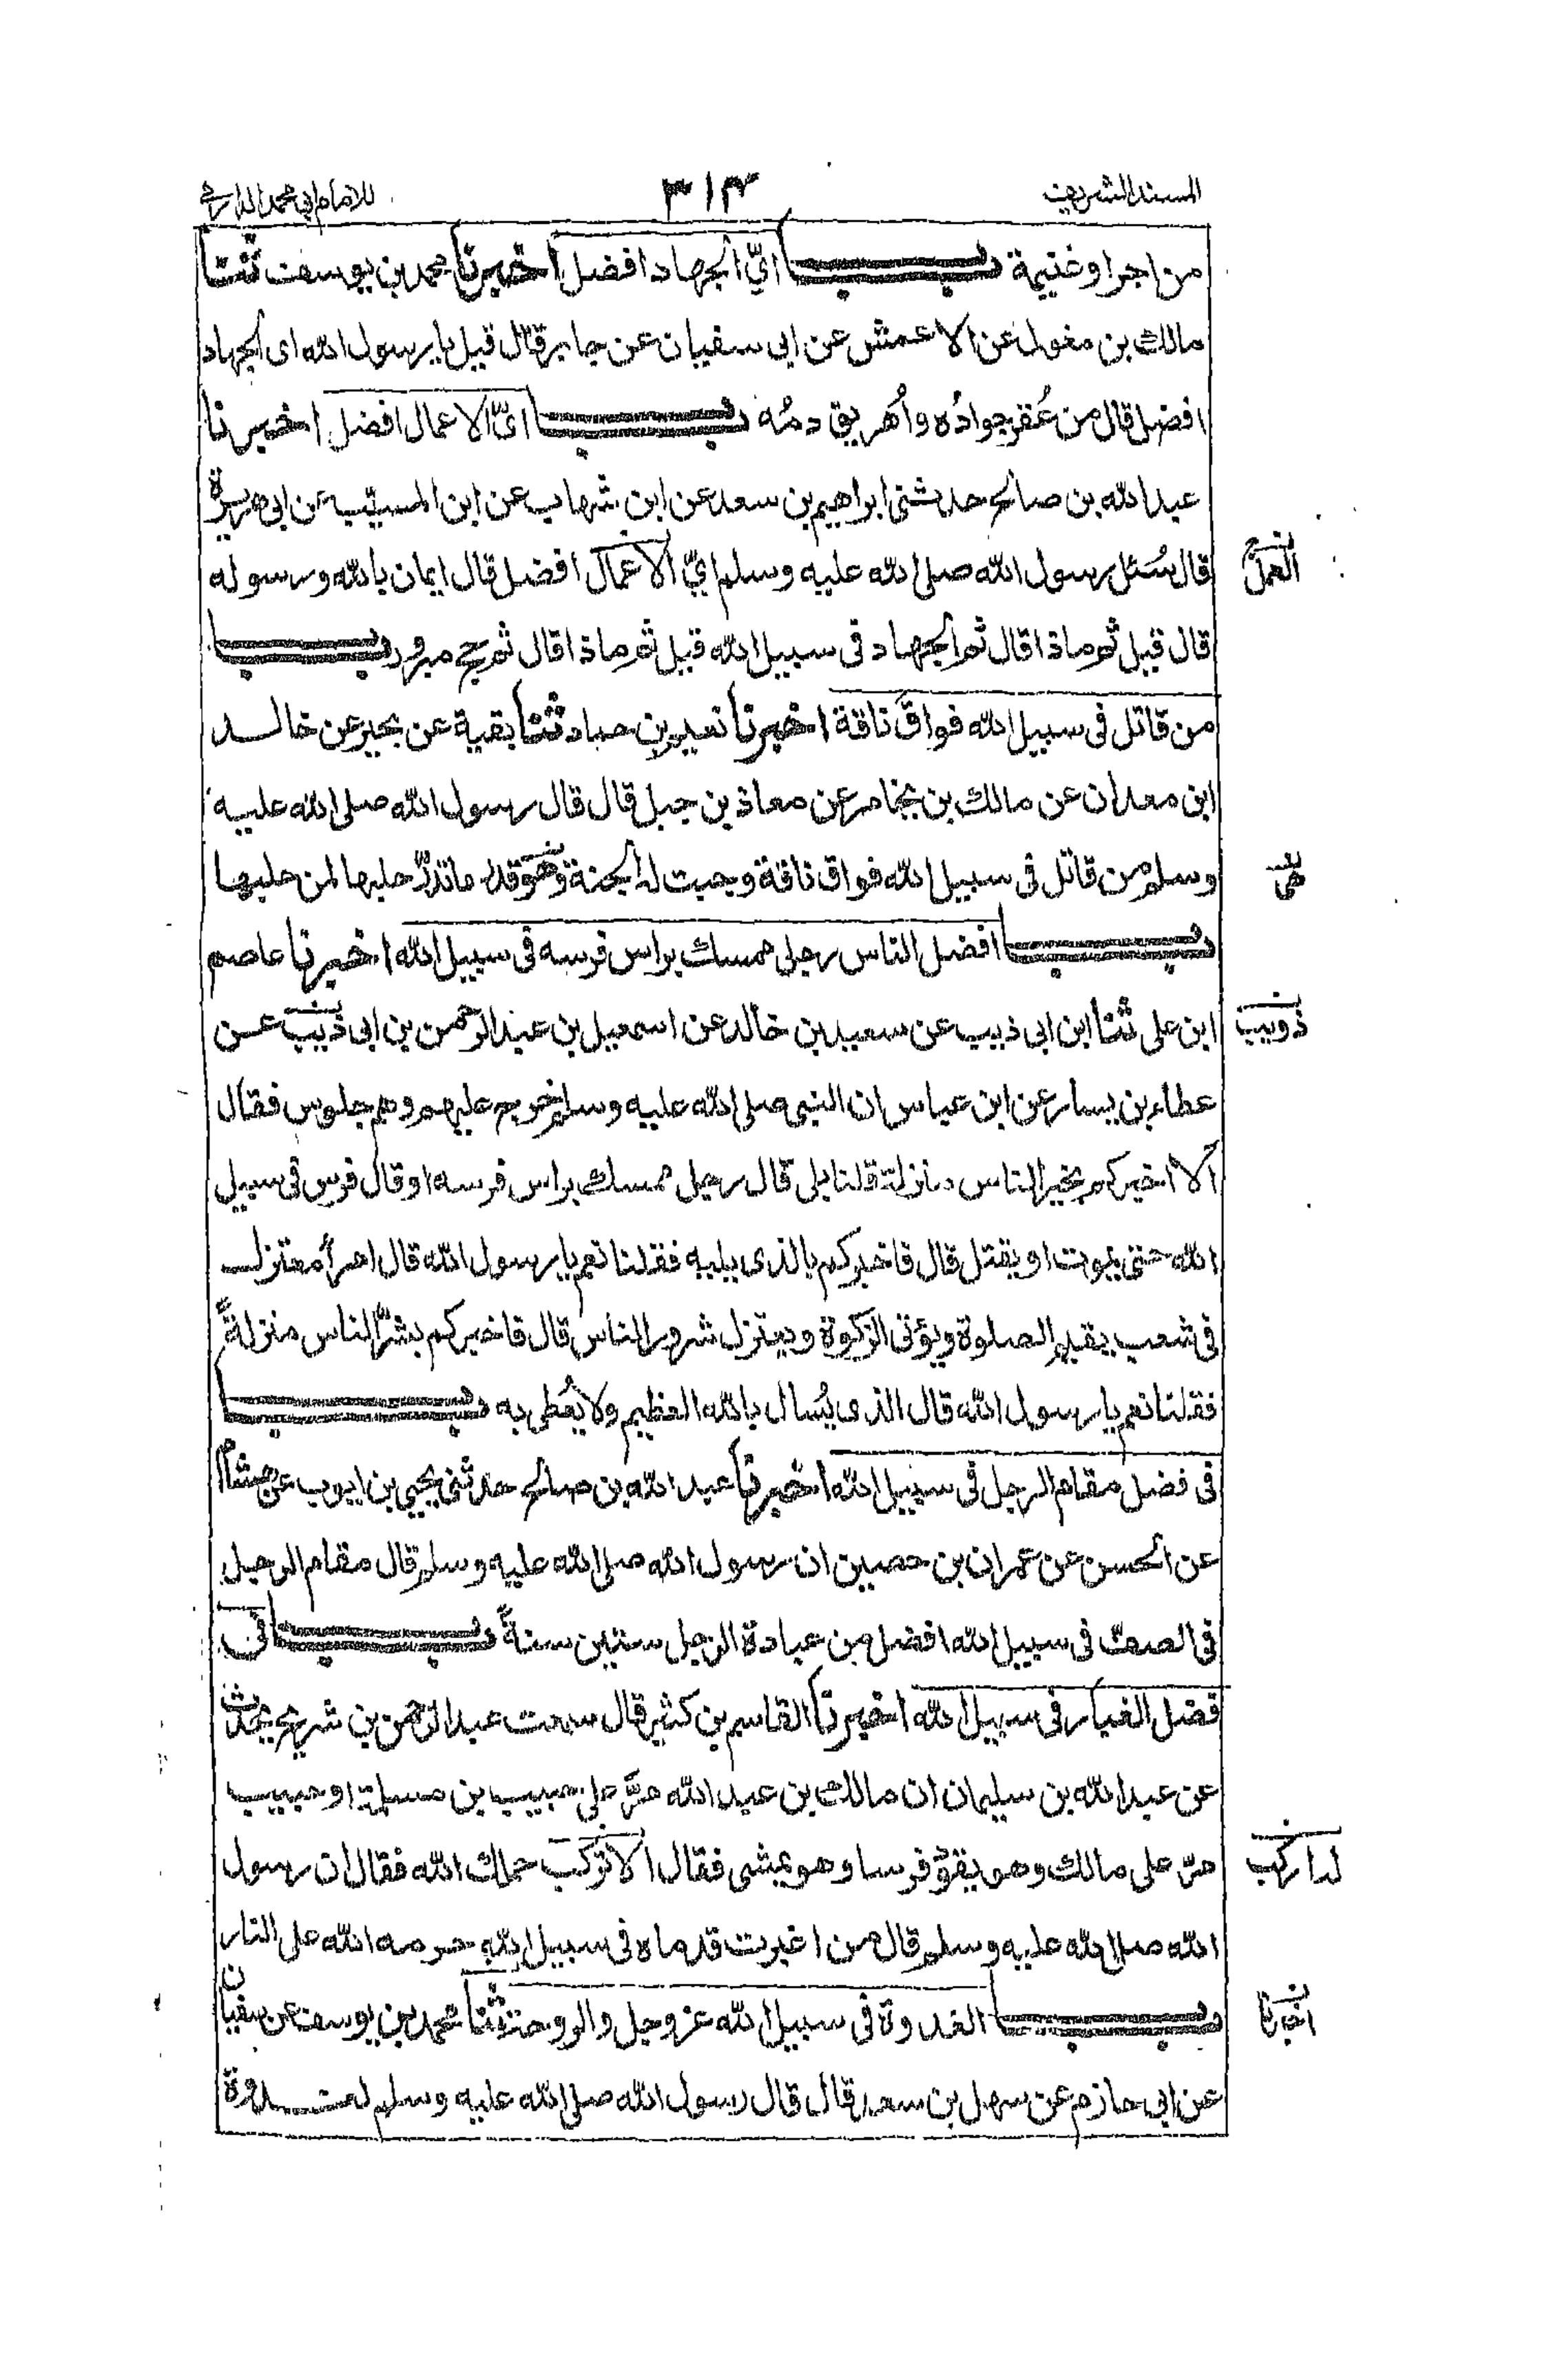 المسند الشريف ٣١٣ للامام ابي محمد الدارمي
من اجر او غنيمة باب ايّ الجهاد افضل اخبرنا محمد بن يوسف ثنا
مالك بن مغول عن الاعمش عن ابي سفيان عن جابر قال قيل يا رسول الله اى الجهاد
افضل قال من عُقر جوادُه وأُهريق دمُه باب اىّ الاعمال افضل اخبرنا
عبد الله بن صالح حدثنى ابراهيم بن سعد عن ابن شهاب عن ابن المسيّب عن ابى هريرة
قال سُئل رسول الله صلى الله عليه وسلم ايّ الاعمال افضل قال ايمان بالله ورسوله
العمل
قال قيل ثم ماذا قال ثم الجهاد فى سبيل الله قيل ثم ماذا قال ثم حج مبرور باب
من قاتل فى سبيل الله فواق ناقة اخبرنا نعيم بن حماد ثنا بقية عن بحير عن خالد
ابن معدان عن مالك بن يخامر عن معاذ بن جبل قال قال رسول الله صلى الله عليه
وسلم من قاتل فى سبيل الله فواق ناقة وجبت له الجنة وهو قدر ما تدرّ حلبها لمن حلبها
هى
باب افضل الناس رجل ممسك براس فرسه فى سبيل الله اخبرنا عاصم
ابن على ثنا ابن ابى ذيب عن سعيد بن خالد عن اسمعيل بن عبد الرحمن بن ابى ذيب عن
ذويب
عطاء بن يسار عن ابن عباس ان النبى صلى الله عليه وسلم خرج عليهم وهم جلوس فقال
الا اخبركم بخير الناس منزلة قلنا بلى قال رجل ممسك براس فرسه او قال فرس فى سبيل
الله حتى يموت او يقتل قال فاخبركم بالذى يليه فقلنا نعم يا رسول الله قال امرأ معتزل
فى شعب يقيم الصلوة ويؤتى الزكوة ويعتزل شرور الناس قال فاخبركم بشرّ الناس منزلةً
فقلنا نعم يا رسول الله قال الذى يُسال بالله العظيم ولا يُعطى به باب
فى فضل مقام الرجل فى سبيل الله اخبرنا عبد الله بن صالح حدثنى يحيى بن ايوب عن هشام
عن الحسن عن عمران بن حصين ان رسول الله صلى الله عليه وسلم قال مقام الرجل
فى الصفّ فى سبيل الله افضل من عبادة الرجل ستين سنةً باب فى
فضل الغبار فى سبيل الله اخبرنا القاسم بن كثير قال سمعت عبد الرحمن بن شريح يحدث
عن عبد الله بن سليمان ان مالك بن عبد الله مرّ على حبيب بن مسلمة او حبيب
مرّ على مالك وهو يقود فرسا وهو يمشى فقال الا تركب حملك الله فقال ان رسول
اركب
الله صلى الله عليه وسلم قال من اغبرت قدماه فى سبيل الله حرمه الله على النار
باب الغدوة فى سبيل الله عز وجل والروحة ثنا محمد بن يوسف عن سفيان
اخبرنا
عن ابى حازم عن سهل بن سعد قال قال رسول الله صلى الله عليه وسلم لغدوة